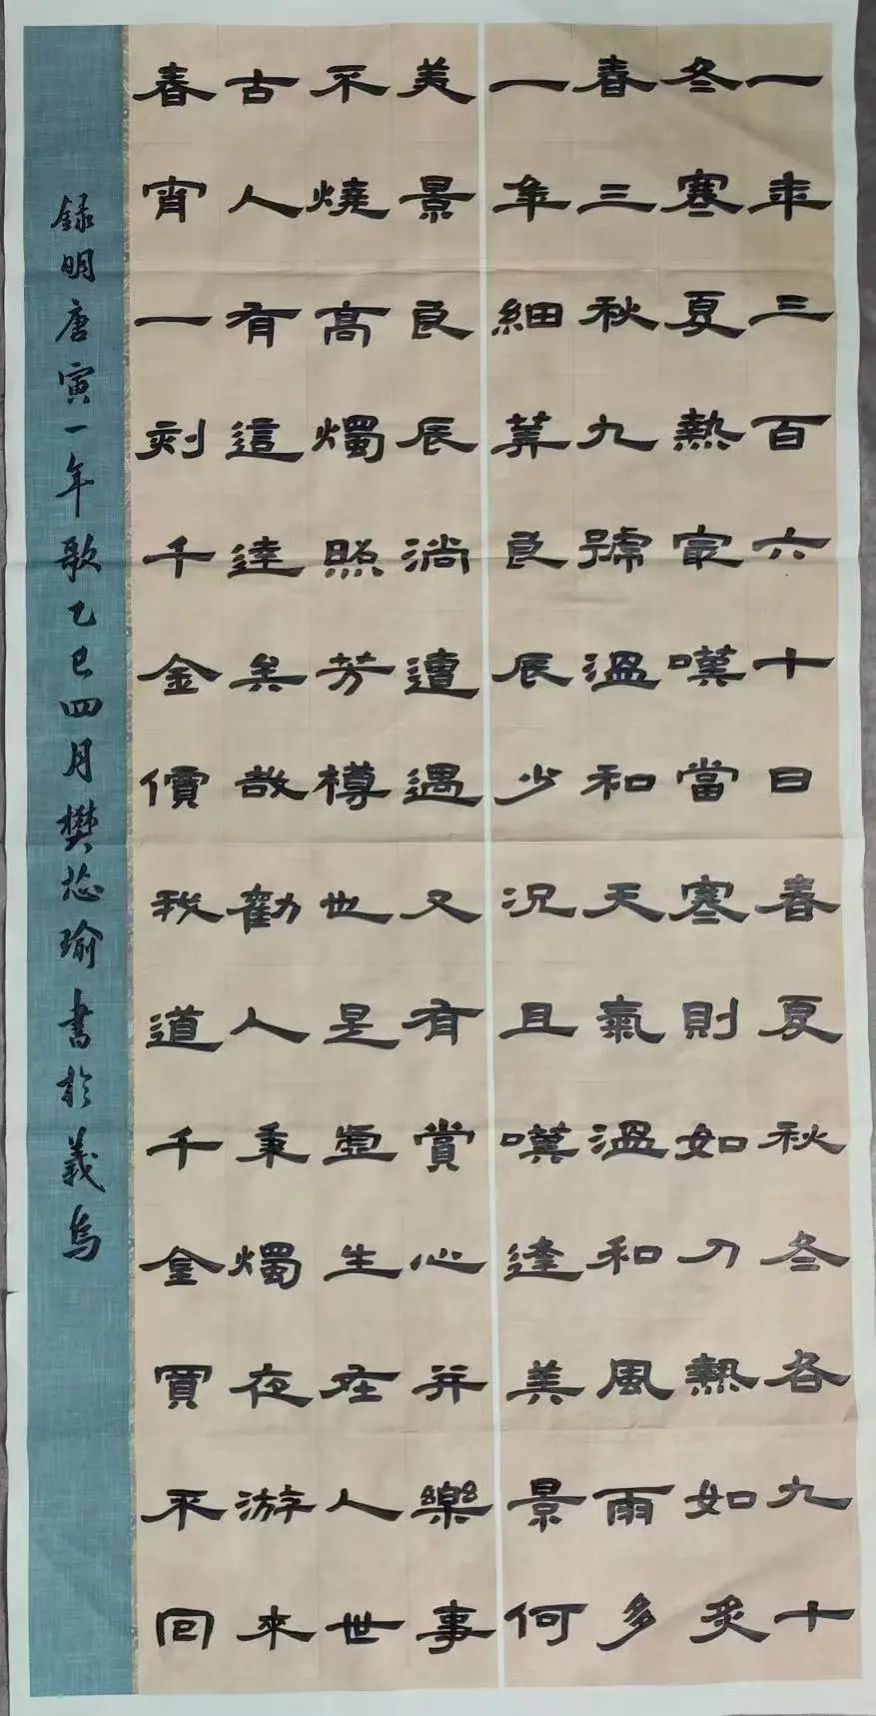 一年三百六十日春夏秋冬各九十
冬寒夏熱冣嘆當寒則如刀熱如炙
春三秋九號溫和天氣溫和風雨多
一年細算良辰少況且嘆逢美景何
美景良辰淌遭遇又有賞心并樂事
不燒高燭照芳樽也是虛生在人世
古人有這達矣哉勸人秉燭夜游來
春宵一刻千金價我道千金買不回
録明唐寅一年歌乙巳四月樊芯瑜書於義烏